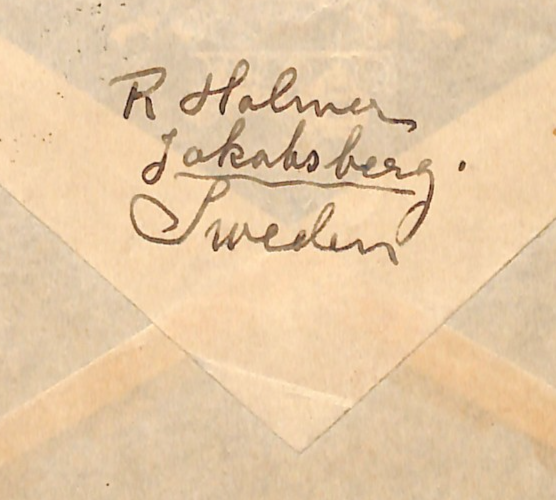 R Holmer
Jakobsberg.
Sweden